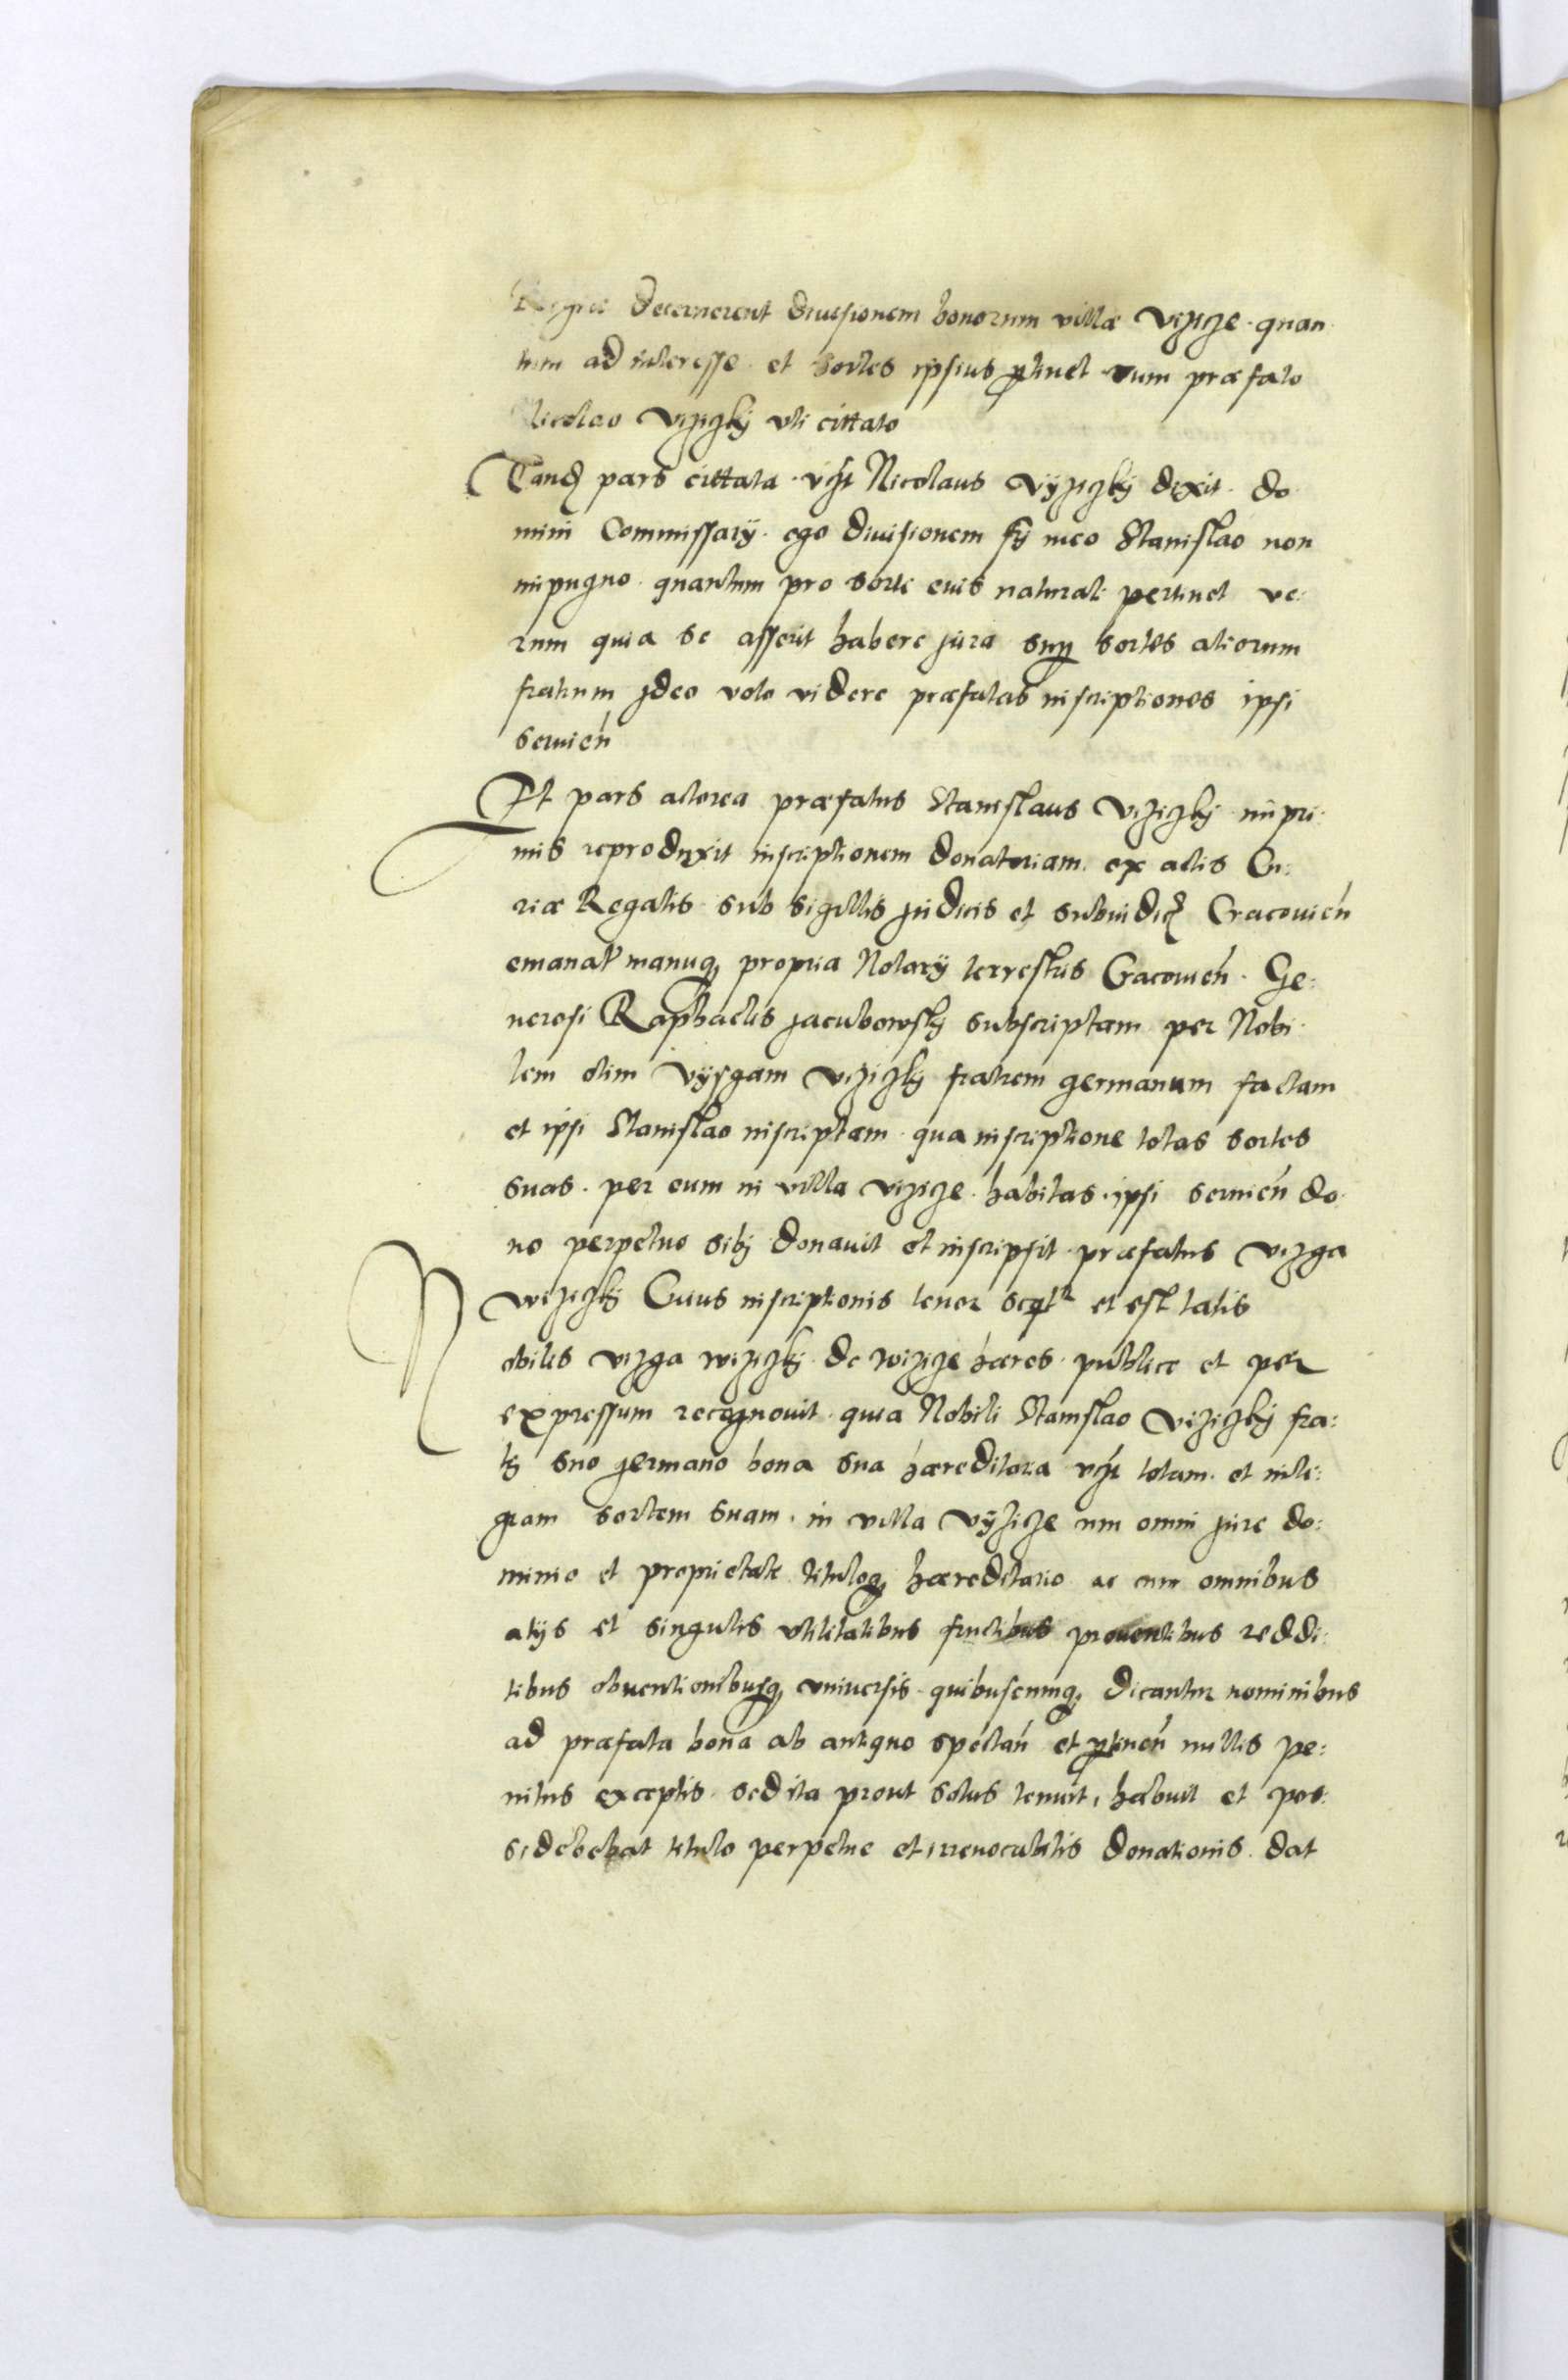 Regiae decernerent diuisionem bonorum villae Vizicze quan
tum ad interesse et sortes ipsius ptinet cum praefato
Nicolao Viziczkÿ vti cittato
Tandē pars cittata vcꝫt Nicolaus Vÿziczkÿ dixit do
mini Commissarÿ ego diuisionem frī meo Stanislao non
inpugno quantum pro sorte euis naturali pertinet ve:
rum quia se asserit habere jura sup sortes aliorum
fratrum jdeo volo videre praefatas inscriptiones ipsi
seruień
Et pars actorea praefatus Stanislaus Viziczkÿ inpri
mis reproduxit inscriptionem donatoriam ex actis Cu:
riae Regalis sub sigillis judicis et subiudicꝭ Cracouień
emanat manuqꝫ propria Notarÿ terrestris Cracouień Ge:
nerosi Raphaelis jacubowskÿ subscriptam per Nobi
lem olim Vÿzgam Viziczkÿ fratrem germanum factam
et ipsi Stanislao inscriptam qua inscriptione totas sortes
suas per eum in villa Vizicze habitas ipsi seruień do
no perpetuo sibj donauit et inscripsit praefatus Vizga
Wiziczkÿ Cuius inscriptionis tenor seqtr et est talis
Nobilis Vizga Wiziczkÿ de Wizicze haeres publice et per
expressum recognouit quia Nobili Stanislao Viziczkÿ fra:
trj suo germano bona sua haereditaria vcꝫt totam et inte:
gram sortem suam in villa Vÿzicze cum omni jure do:
minio et proprietate tituloqꝫ haereditario ac cum omnibus
alijs et singulis vtilitatibus fructibus prouentibus reddi:
tibus obuentionibusqꝫ vniuersis quibuscunqꝫ dicantur nominibus
ad praefata bona ab antiquo spectań et ptineń nullis pe:
nitus exceptis sed ita prout solus tenuit, habuit et pos:
sidebebat titulo perpetue et irreuocabilis donationis dat